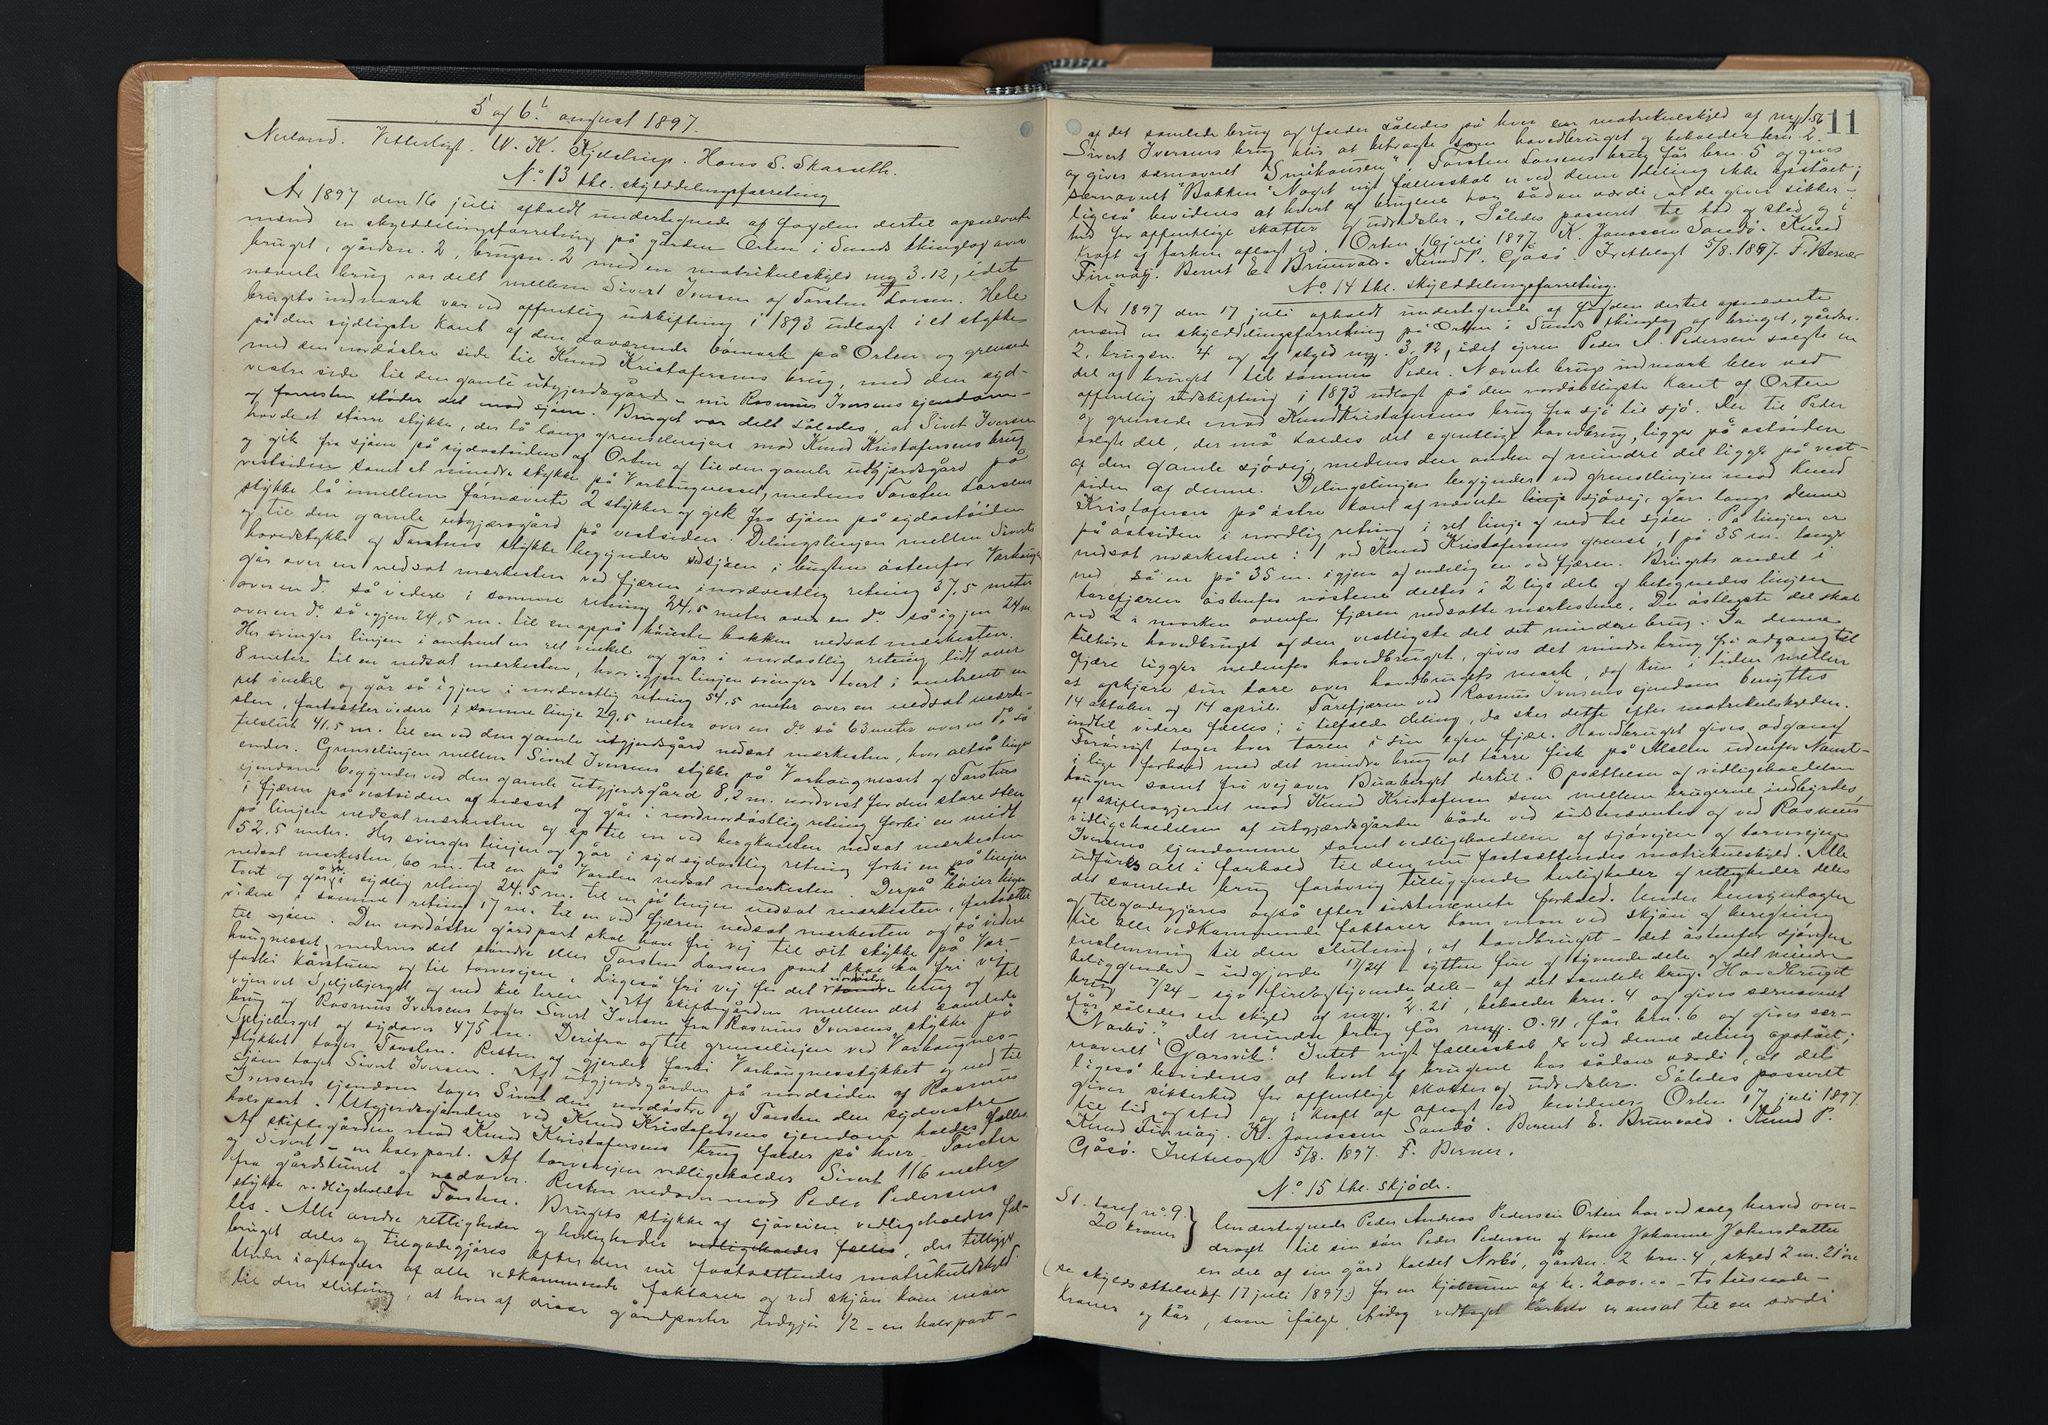 5' og 6' august 1897.
Neiland. Vitterligt. W. K. Hans S. Skarseth.
No 13 thl. skylddelingsforretning
År 1897 den 16 juli afholdt undertegnede af fogden dertil opnævnte
mænd en skylddelingsforretning på gården Orten i Sunds thinglag over
bruget, gårdsn. 2, brugsn. 2 med en matrikulskyld mrk 3.12, idet
nævnte brug var delt mellem Sivert Iversen og Torsten Larsen. Hele
brugets indmark var ved offentlig udskiftning i 1893 udlagt i et stykke
på den sydligste kant af den daværende bömark på Orten og grensede
med den nordöstre side til Knud Kristofersens brug, med den syd-
vestre side til den gamle utgjerdsgård nu Rasmus Iversens ejendom
og forresten stöder det mod sjöen. Bruget var delt således, at Sivert Iversen
havde et större stykke, der lå langs grenselinjen mod Knud Kristofersens brug
og gik fra sjöen på sydostsiden af Orten og til den gamle utgjerdsgård på
vestsiden samt et mindre stykke på Varhaugnesset, medens Torsten Larsens
stykke lå imellem förnævnte 2 stykker og gik fra sjöen på sydostsiden
og til den gamle utgjærdsgård på vestsiden. Delingslinjen mellem Siverts
hovedstykke og Torstens stykke begynder ved sjöen i bugten östenfor Varhaugen
går over en nedsat mærkesten ved fjæren i nordvestlig retning 37,5 meter
over en do. så videre i samme retning 24,5 meter over en do så igjen 24 m.
over en do. så igjen 24,5 m. til en oppå höieste bakken nedsat mærkesten.
Her svinger linjen i omtrent en ret vinkel og går i nordostlig retning lidt over
8 meter til en nedsat mærkesten, hvor igjen linjen svinger tvert i omtrent en
ret vinkel og går så igjen i nordvestlig retning 54,5 meter over en nedsat mærke-
sten, fortsætter videre i samme linje 29,5 meter over en do så 63 meter over en do så
tilslut 41.5 m. til en ved den gamle utgjerdsgård nedsat mærkesten, hvor altså linjen
ender. Grenselinjen mellem Sivert Iversens stykke på Varhaugnesset og Torstens
ejendom begynder ved den gamle utgjerdsgård 8,2 m. nordvest for den store sten
i fjæren på vestsiden af næsset og går i nordnordöstlig retning forbi en midt
på linjen nedsat mærkesten og op til en ved bergkanten nedsat mærkesten
52.5 meter. Her svinger linjen og går i sydsydöstlig retning forbi en på linjen
nedsat mærkesten 60 m. til en på Varden nedsat mærkesten. Derpå böier linjen
tvert og går i sydlig retning 24.5 m. til en på linjen nedsat mærkesten, fortsætter
videre i samme retning 17 m. til en ved fjæren nedsat mærkesten og så videre
til sjöen. Den nordöstre gårdpart skal have fri vej til sit stykke på Var-
haugnesset, medens det söndre eller Torsten Larsens part skal ha fri vej
forbi kårstuen og til torvvejen. Ligeså fri vej for det nordöstre brug og til
vejen ved Seljebjerget og ned til leren. Af skiftegården mellem det samlede
brug og Rasmus Iversens tager Sivert Iversen fra Rasmus Iversens stykke på
Seljeberget og sydover 475 m. Derifra og til grenselinjen ved Varhaugnes-
stykket tager Torsten. Resten af gjerdet forbi Varhaugnesstykket og ned til
sjöen tager Sivert Iversen. Af utgjerdsgården på nordsiden af Rasmus
Iversens ejendom tager Sivert den nordöstre og Torsten den sydvestre
halvpart. Utgjerdsgården ved Knud Kristofersens ejendom holdes fælles.
Af skiftegården mod Knud Kristofersens brug falder på hver - Torsten
og Sivert - en halvpart. Af torvevejen vedligeholder Sivert 116 meter
fra gårdstunet og nedover. Resten nedover mod Peder Pedersens
stykke vedligeholder Torsten. Brugets stykke af sjöveien vedligeholdes fæl-
les. Alle andre rettigheder og herligheder vedligeholdes fælles, der tilligger
bruget deles og tilgodegjöres efter den nu fastsættendes matrikulskyld.
Under iagttagelse af alle vedkommende faktorer og ved skjön kom man
til den slutning, at hver af disse gårdparter udgjör 1/2 - en halvpart -
11
af det samlede brug og falder således på hver en matrikulskyld af mrk 1.56
Sivert Iversens brug blir at betragte som hovedbruget og beholder brn. 2
og gives særnavnet "Smihausen" Torsten Larsens brug får brn. 5 og gives
særnavnet "Bakken" Noget nyt fællesskab er ved denne deling ikke opstået;
ligeså bevidnes at hvert af brugene har sådan værdi, at de giver sikker-
hed for offentlige skatter og udredsler. Således passeret til tid og sted og i
kraft af forhen aflagt ed. Orten 16 juli 1897. K. Jonassen Sandö. Knud
Finnöy. Bernt E. Brunvold. Knud P. Gåsö. Fretteligt 5/8. 1897. F. Berner
No 14 thl. skylddelingsforretning.
År 1897 den 17 juli afholdt undertegnede af fogden dertil opnævnte
mænd en skylddelingsforretning på Orten i Sunds thinglag og bruget, gårdsn.
2, brugsn. 4 og af skyld mrk. 3,12, idet ejeren Peder A. Pedersen solgte en
del af bruget til sönnen Peder. Nævnte brugs indmark blev ved
offentlig udskiftning i 1893 udlagt på den nordöstligste kant af Orten
og grensede mod Knud Kristofersens brug fra sjö til sjö. Den til Peder
solgte del, der må kaldes det egentlige hovedbrug, ligger på östsiden
af den gamle sjövej, medens den anden og mindre del ligger på vest-
siden af denne. Delingslinjen begynder ved grenselinjen mod Knud
Kristofersen på östre kant af nævnte linje sjövej, går langs denne
på östsiden i nordlig retning i ret linje og ned til sjöen. På linjen er
nedsat mærkestene: 1 ved Knud Kristofersens grense, 1 på 35 m. længre
ned så en på 35 m. igjen og endelig en ved fjæren. Brugets andel i
torefjæren östenfor nöstene deltes i 2 lige dele og betegnedes linjen
ved 2 i marken ovenfor fjæren nedsatte mærkestene. Den östligste del skal
tilhöre hovedbruget og den vestligste del det mindre brug. Da denne
fjære ligger nedenfor hovedbruget, gives det mindre brug fri adgang til
at opkjöre sin tare over hovedbrugets mark, dog kun i tiden mellem
14 oktober og 14 april. Tarefjæren ved Rasmus Iversens ejendom benyttes
indtil videre fælles; i tilfælde deling, da sker dette efter matrikulskylden.
Forövrigt tager hver taren i sin egen fjære. Hovedbruget gives adgang
i lige forhold med det mindre brug at törre fisk på Malen udenfor Naust-
haugen samt fri vej over Buaberget dertil. Opsættelsen og vedligeholdelsen
af skiftesgjerdet mod Knud Kristofersen som mellem brugerne indbyrdes,
vedligeholdelsen af utgjærdsgården både ved sidstnævntes og ved Rasmus
Iversens ejendomme samt vedligeholdelsen af sjövejen og torvevejene
udföres alt i forhold til den nu fastsættendes matrikulskyld. Alle
det samlede brug forövrig tilliggende herligheder og rettigheder deles
og tilgodegjöres også efter sidstnævnte forhold. Under hensyntagen
til alle vedkommende faktorer kom man ved skjön og beregning
enstemmig til den slutning, at hovedbruget - det östenfor sjövejen
beliggende - udgjorde 17/24 - sytten fire og tyvendedele og det mindre
brug 7/24 - syv fireogtyvendedele - af det samlede brug. Hovedbruget
får således en skyld af mrk. 2.21, beholder brn. 4 og gives særnavnet
"Norbö." Det mindre brug får mrk. 0.91, får brn. 6 og gives sær-
navnet "Garsvik". Intet nyt fællesskab er ved denne deling opstået;
ligeså bevidnes at hvert af brugene har sådan værdi, at det
giver sikkerhed for offentlige skatter og udredsler. Således passeret
til tid og sted og i kraft af aflagt ed bevidnes. Orten 17 juli 1897.
Knud Finnöy. K. Jonassen Sandö. Berent E. Brunvold. Knud P.
Gåsö. Fretteligt 5/8. 1897. F. Berner.
No 15 thl. skjöde.
St. taref no. 9
20 kroner
Undertegnede Peder Andreas Pedersen Orten har ved salg herved over-
draget til sin sön Peder Pedersen og kone Johanne Johnsdatter
en del af sin gård kaldet Norbö, gårdsn. 2 brn. 4, skyld 2 m. 21 öre
(se skyldsættelse af 17 juli 1897:) for en kjöbesum af kr. 2000.00 - to tusinde -
kroner og kår, som ifölge bidrag vedtaget kårbrev er ansat til en værdi